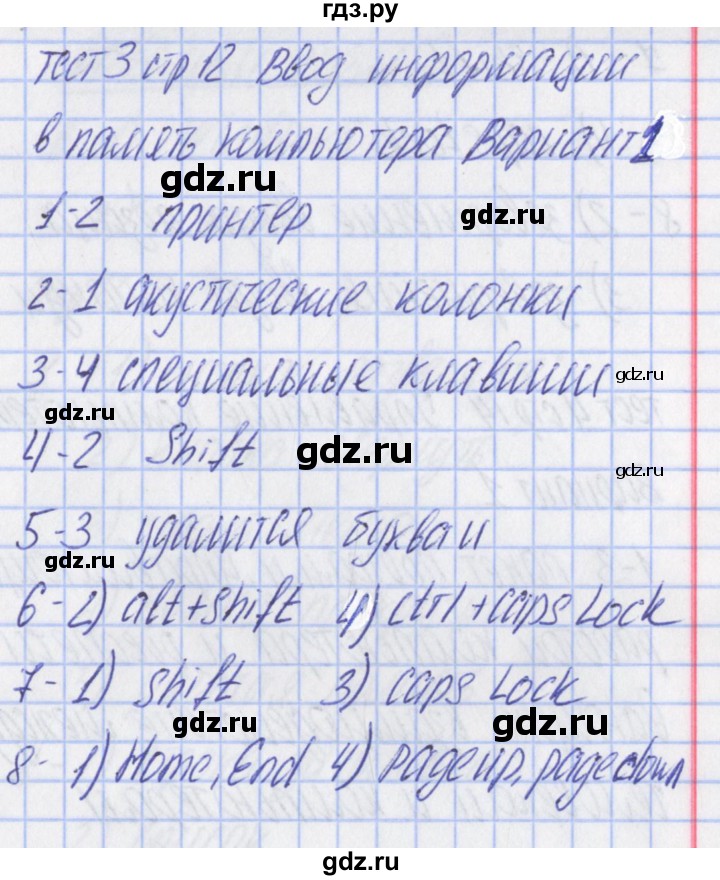 гдз.ру
Тест 3 стр 12 Ввод информации
в память компьютера Вариант 1
gdz.ru
1-2 принтер gdz.ru
2-1 акустические колонки
3-4 специальные клавиши gdz.ru
gdz.ru
4-2 Shift gdz.ru gdz.ru
5-3 удалится буква и
gdz.ru
6-2) alt+shift 4) ctrl+caps Lock
7-1) shift 3) caps Lock
gdz.ru gdz.ru
8-1) Home, End 4) pageup, pagedown
gdz.ru